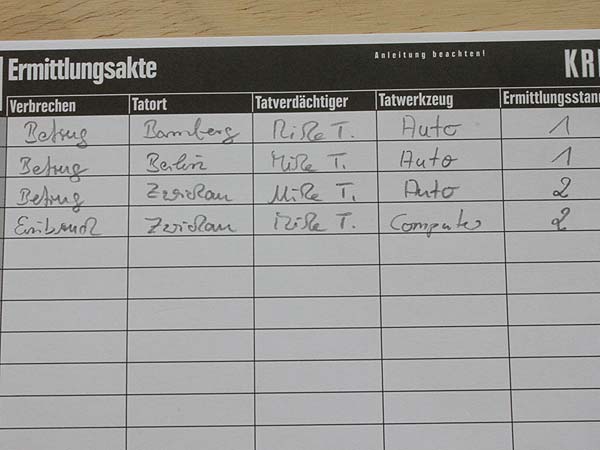 Anleitung beachten!
Ermittlungsakte KRI
Verbrechen Tatort Tatverdächtiger Tatwerkzeug Ermittlungsstan
Betrug Bamberg Mike T. Auto 1
Betrug Berlin Mike T. Auto 1
Betrug Zwickau Mike T. Auto 2
Einbruch Zwickau Mike T. Computer 2